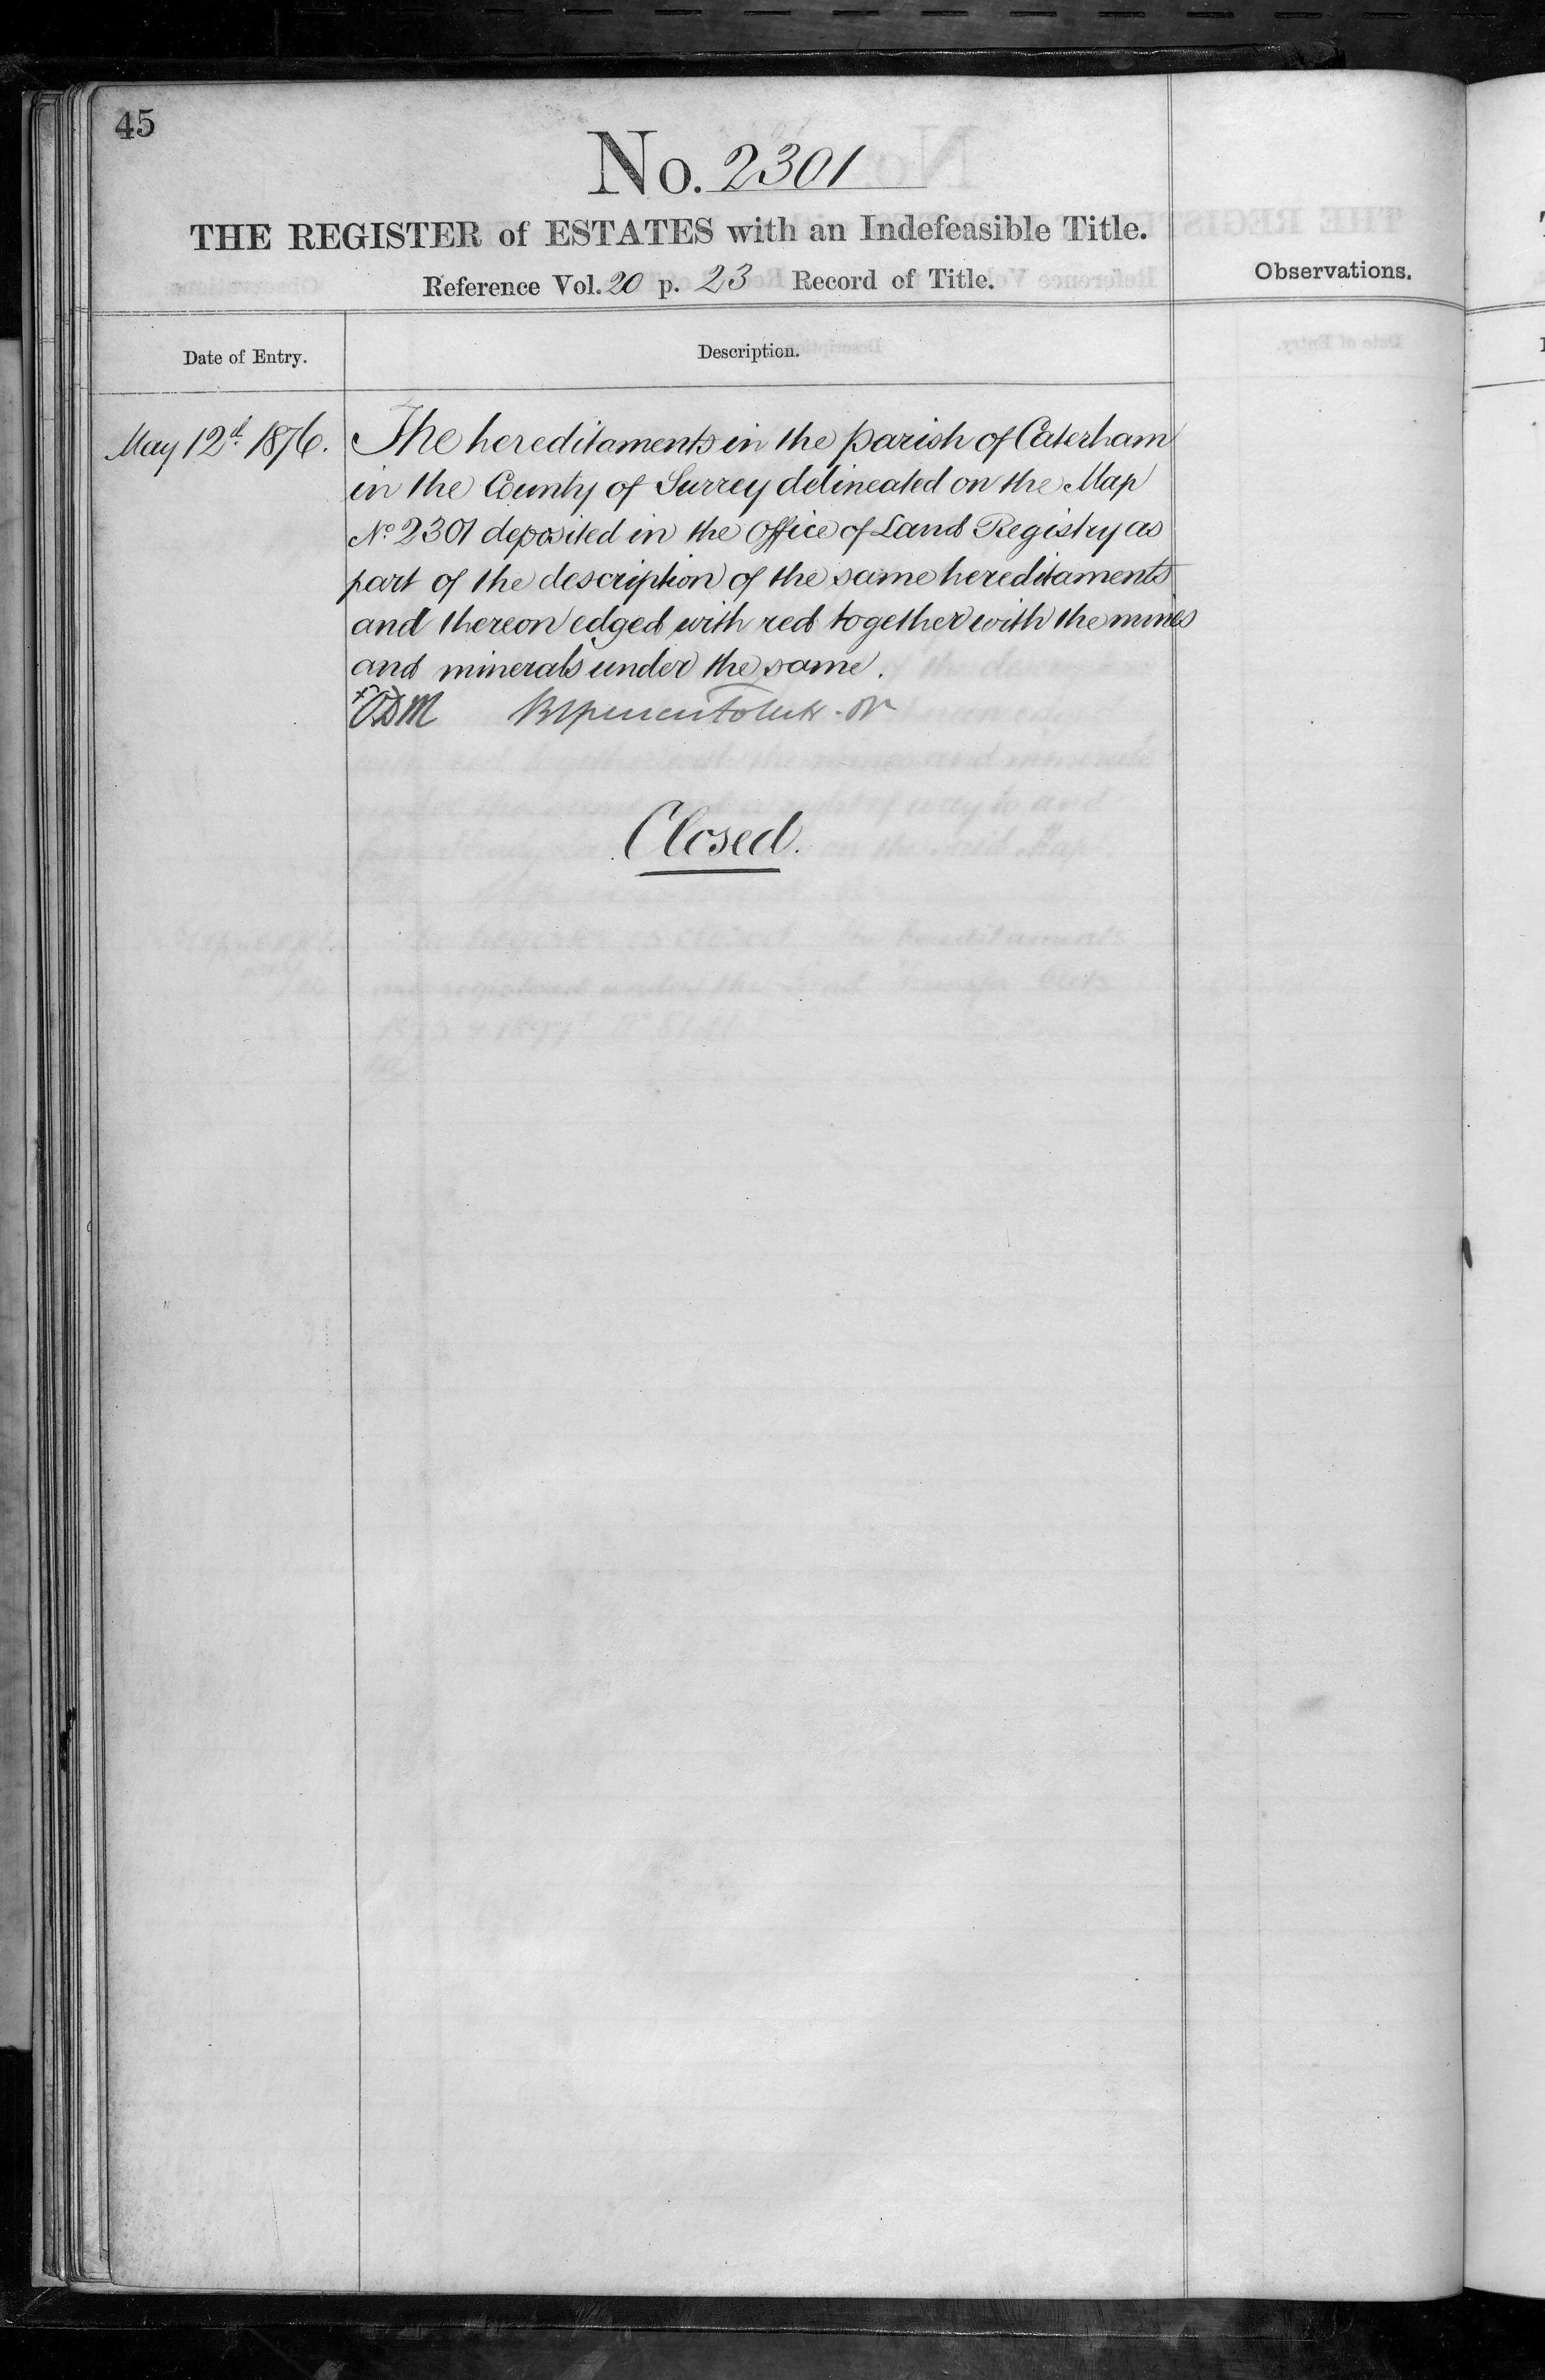 45
No. 2301
THE REGISTER of ESTATES with an Indefeasible Title.
Reference Vol. 20 p. 23 Record of Title.
Observations.
Date of Entry.
Description.
May 12th 1876.
The hereditaments in the parish of Caterham
in the County of Surrey delineated on the Map
No. 2301 deposited in the Office of Land Registry as
part of the description of the same hereditaments
and thereon edged with red together with the mines
and minerals under the same.
Closed.